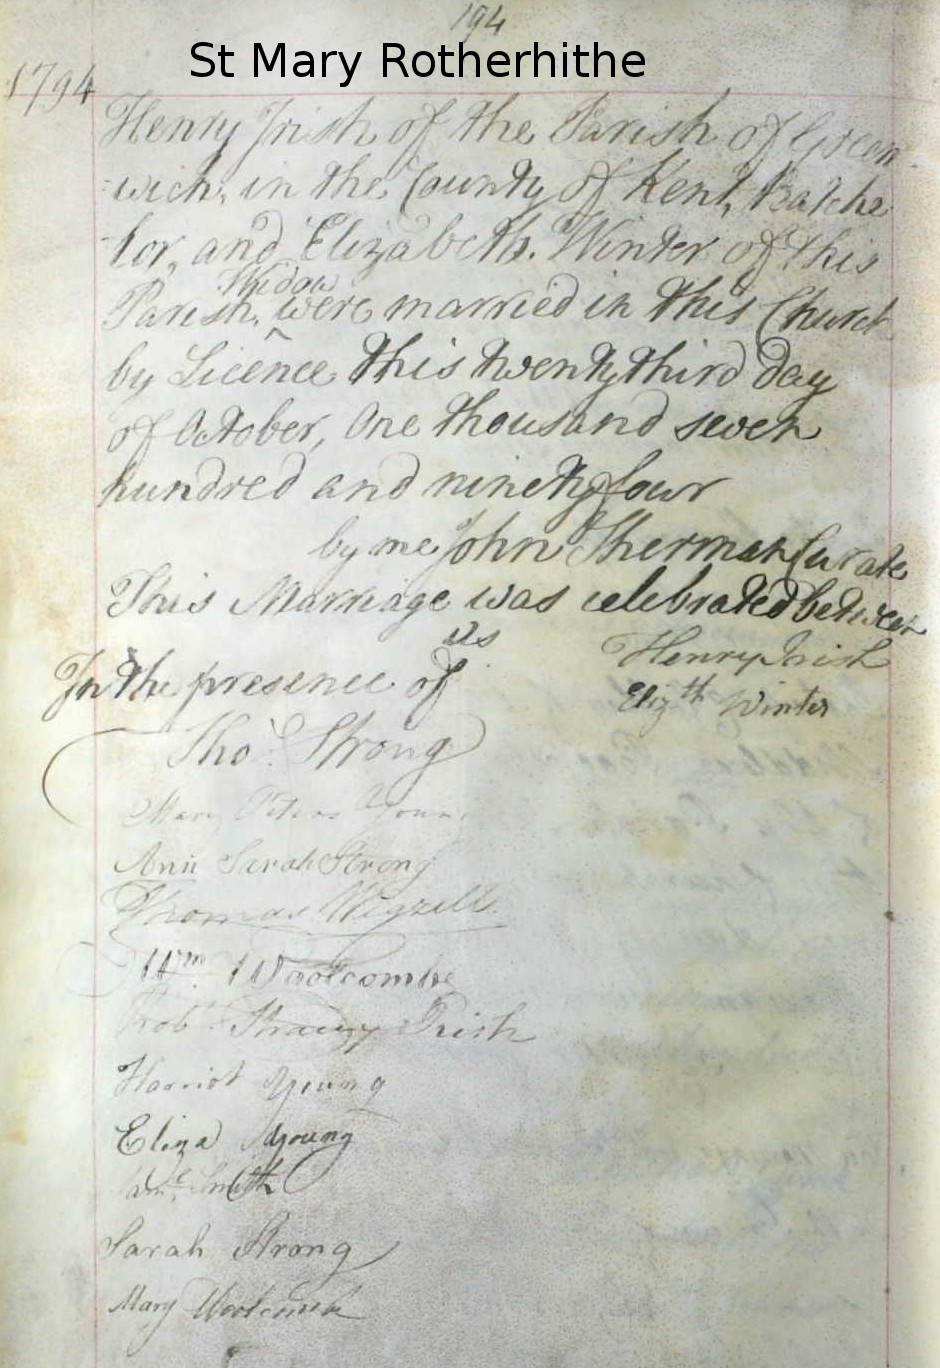 194
St Mary Rotherhithe
1794
Henry Irish of the Parish of Green-
-wich, in the County of Kent, Batche
-lor, and Elizabeth Winter of this
Widow
Parish, ^ were married in this Church
by Licence this twenty third day
of October, One thousand seven
hundred and ninety four
by me John Sherman Curate
This Marriage was celebrated between
us
Henry Irish
In the presence of
Elizth Winter
Thos. Strong
Mary Peters Young
Ann Sarah Strong
Thomas Wigzell
Wm Woolcombe
Robt Tracey Irish
Harriot Young
Eliza Young
Smith
Sarah Strong
Mary Woolcombe